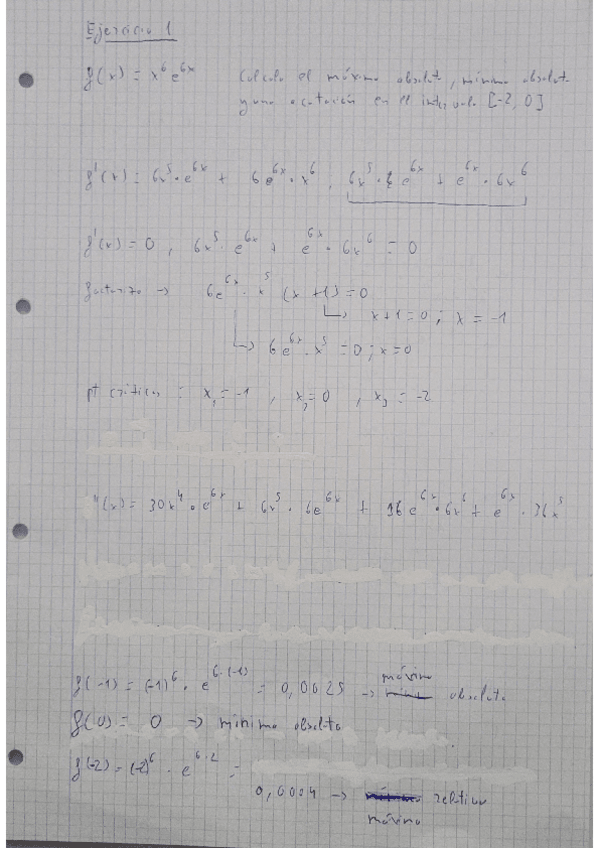 Ejercicio 1
g(x) = x⁶ e⁶ˣ calcula el máximo absoluto, mínimo absoluto
y una acotación en el intervalo [-2, 0]
g'(x) = 6x⁵ · e⁶ˣ + 6e⁶ˣ · x⁶, 6x⁵ · e⁶ˣ + e⁶ˣ · 6x⁶
g'(x) = 0, 6x⁵ · e⁶ˣ + e⁶ˣ · 6x⁶ = 0
factorizo → 6e⁶ˣ · x⁵ (x+1) = 0
→ x+1 = 0; x = -1
→ 6e⁶ˣ · x⁵ = 0; x = 0
pt críticos = x₁ = -1, x₂ = 0, x₃ = -2
g''(x) = 30x⁴ · e⁶ˣ + 6x⁵ · 6e⁶ˣ + 36e⁶ˣ · 6x⁶ + e⁶ˣ · 36x⁵
máximo
g(-1) = (-1)⁶ · e⁶·⁽⁻¹⁾ = 0,0025 → absoluto
g(0) = 0 → mínimo absoluto
g(-2) = (-2)⁶ · e⁶·² =
0,0004 → relativo
máximo